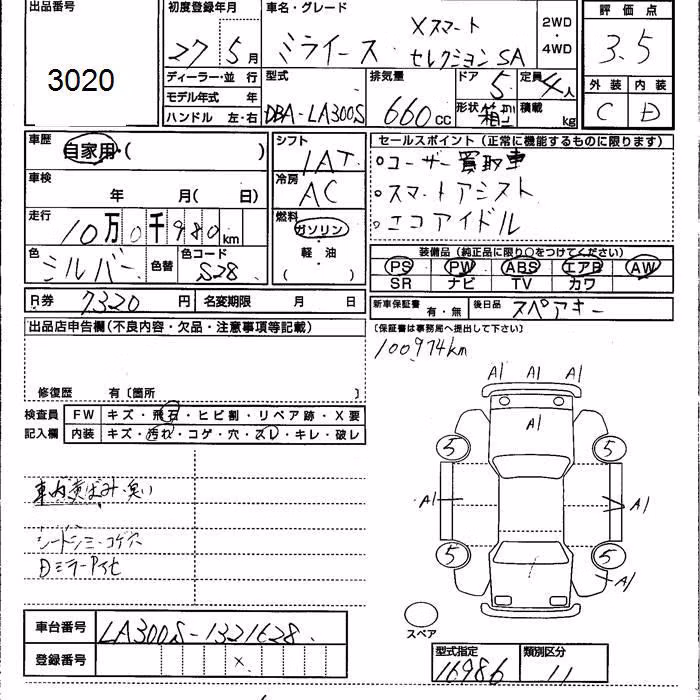 出品番号
3020
初度登録年月
27 5月
車名・グレード
ミライース Xスマート
セレクション SA
2WD
・
4WD
評価点
3.5
外装 内装
C D
ディーラー・並 行
モデル年式 年
ハンドル 左・右
型式
DBA-LA300S
排気量
660 cc
ドア
5
形状 箱型
定員 4人
積載 kg
車歴
自家用・( )
車検
年 月( 日)
走行
10万0千980 km
色
シルバー
色替
色コード
S28
シフト
IAT
冷房
AC
燃料
ガソリン
・
(軽・油)
セールスポイント (正常に機能するものに限ります)
・ユーザー買取車
・スマートアシスト
・エコアイドル
装備品 (純正品に限り○をつけてください)
PS PW ABS エアB AW
SR ナビ TV カワ
R券 7320 円 名変期限 月 日
新車保証書 有・無 後日品 スペアキー
(保証書は事務局へ提出して下さい)
出品店申告欄(不良内容・欠品・注意事項等記載)
100974km
修復歴 有〔箇所 〕
検査員 FW キズ・飛石・ヒビ割・リペア跡・X要
記入欄 内装 キズ・汚れ・コゲ・穴・スレ・キレ・破レ
車内黄ばみ・臭い
シートシミ・コゲ穴
A1 A1 A1
A1
5 5
A1 A1
5 5
A1
スペア
車台番号 LA300S-1321628
登録番号 ×
型式指定 類別区分
16986 11